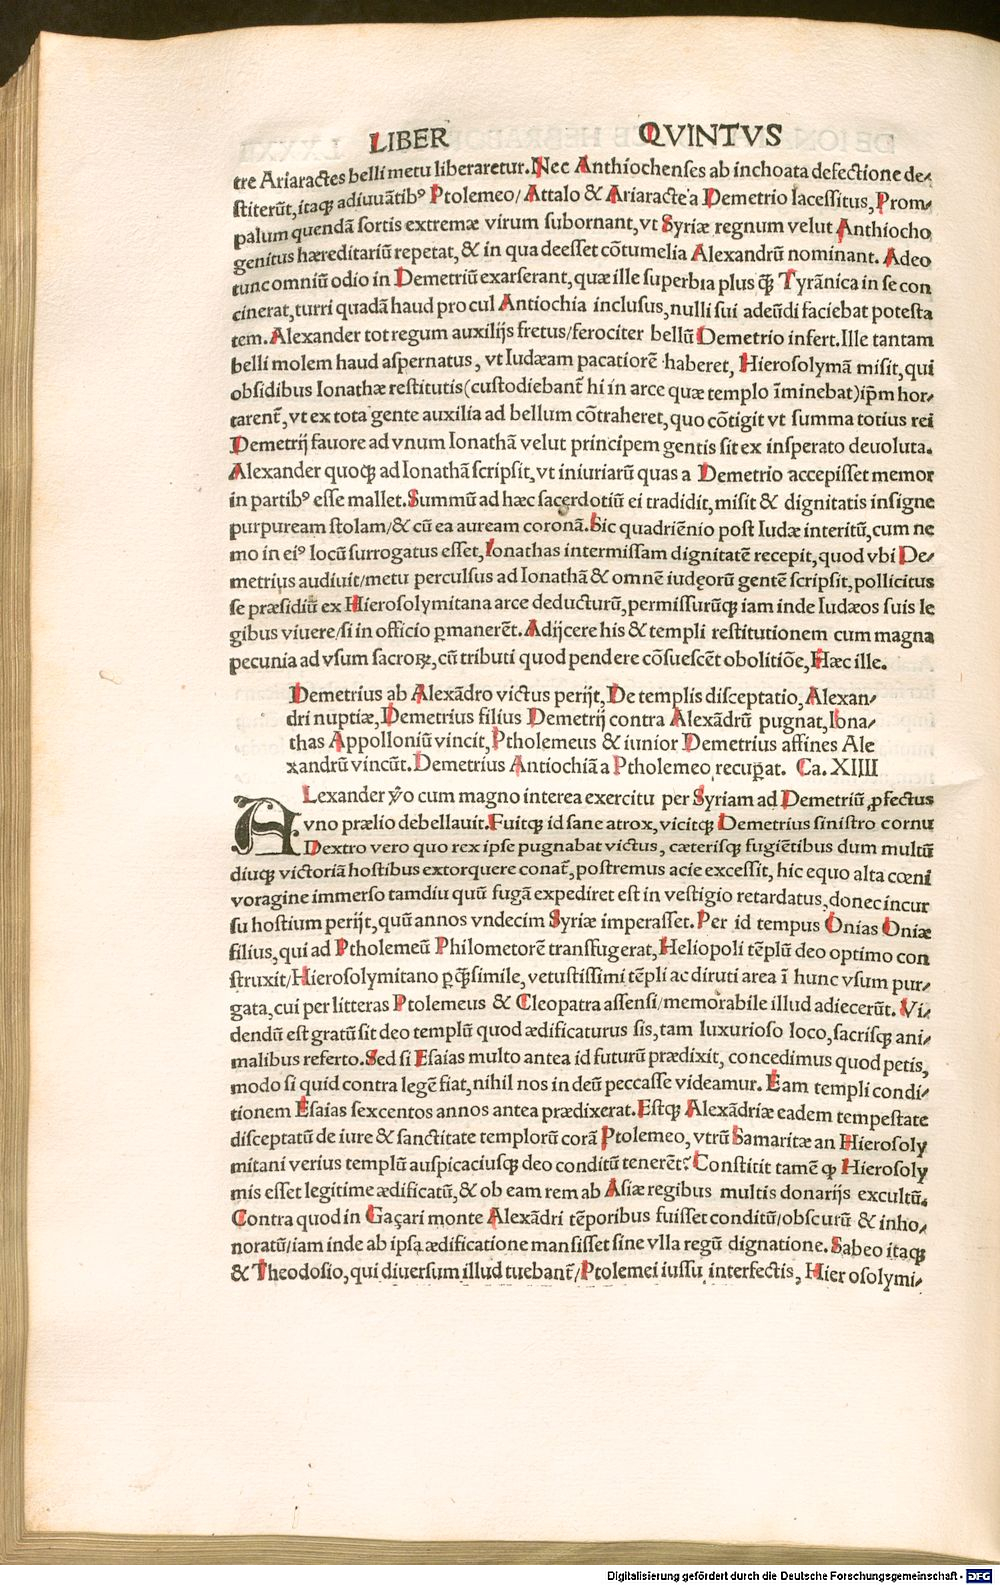 LIBER QVINTVS
tre Ariaractes belli metu liberaretur. Nec Anthiochenses ab inchoata defectione de⸗
stiterūt, itaqꝫ adiuuātibꝰ Ptolemeo/ Attalo & Ariaracte a Demetrio lacessitus, Prom⸗
palum quendā sortis extremæ virum subornant, vt Syriæ regnum velut Anthiocho
genitus hæreditariū repetat, & in qua deesset cōtumelia Alexandrū nominant. Adeo
tunc omniū odio in Demetriū exarserant, quæ ille superbia plus q̄ꝫ Tyrānica in se con
cinerat, turri quadā haud procul Antiochia inclusus, nulli sui adeūdi faciebat potesta
tem. Alexander tot regum auxilijs fretus/ ferociter bellū Demetrio infert. Ille tantam
belli molem haud aspernatus, vt Iudæam pacatiorē haberet, Hierosolymā misit, qui
obsidibus Ionathæ restitutis (custodiebant̄ hi in arce quæ templo īminebat) ip̄m hor⸗
tarent̄, vt ex tota gente auxilia ad bellum cōtraheret, quo cōtigit vt summa totius rei
Demetrij fauore ad vnum Ionathā velut principem gentis sit ex insperato deuoluta.
Alexander quoqꝫ ad Ionathā scripsit, vt iniuriarū quas a Demetrio accepisset memor
in partibꝰ esse mallet. Summū ad hæc sacerdotiū ei tradidit, misit & dignitatis insigne
purpuream stolam/ & cū ea auream coronā. Sic quadriēnio post Iudæ interitū, cum ne
mo in eiꝰ locū surrogatus esset, Ionathas intermissam dignitatē recepit, quod vbi De⸗
metrius audiuit/ metu perculsus ad Ionathā & omnē iudęorū gentē scripsit, pollicitus
se præsidiū ex Hierosolymitana arce deducturū, permissurūqꝫ iam inde Iudæos suis le
gibus viuere/ si in officio ꝑmanerēt. Adijcere his & templi restitutionem cum magna
pecunia ad vsum sacroꝝ, cū tributi quod pendere cōsuescēt obolitiōe, Hæc ille.
Demetrius ab Alexādro victus perijt, De templis disceptatio, Alexan⸗
dri nuptiæ, Demetrius filius Demetrij contra Alexādrū pugnat, Iona⸗
thas Appolloniū vincit, Ptholemeus & iunior Demetrius affines Ale
xandrū vincūt. Demetrius Antiochiā a Ptholemeo recuꝑat. Ca. XIIII
ALexander v̄o cum magno interea exercitu per Syriam ad Demetriū ꝓfectus
vno prælio debellauit. Fuitqꝫ id sane atrox, vicitqꝫ Demetrius sinistro cornu
Dextro vero quo rex ipse pugnabat victus, cæterisqꝫ fugiētibus dum multū
diuqꝫ victoriā hostibus extorquere conat̄, postremus acie excessit, hic equo alta cœni
voragine immerso tamdiu quū fugā expediret est in vestigio retardatus, donec incur
su hostium perijt, quū annos vndecim Syriæ imperasset. Per id tempus Onias Oniæ
filius, qui ad Ptholemeū Philometorē transfugerat, Heliopoli tēplū deo optimo con
struxit/ Hierosolymitano ꝑq̄ꝫsimile, vetustissimi tēpli ac diruti area ī hunc vsum pur⸗
gata, cui per litteras Ptolemeus & Cleopatra assensi/ memorabile illud adiecerūt. Vi⸗
dendū est gratū sit deo templū quod ædificaturus sis, tam luxurioso loco, sacrisqꝫ ani⸗
malibus referto. Sed si Esaias multo antea id futurū prædixit, concedimus quod petis,
modo si quid contra legē fiat, nihil nos in deū peccasse videamur. Eam templi condi⸗
tionem Esaias sexcentos annos antea prædixerat. Estqꝫ Alexādriæ eadem tempestate
disceptatū de iure & sanctitate templorū corā Ptolemeo, vtrū Samaritæ an Hierosoly
mitani verius templū auspicaciusqꝫ deo conditū tenerēt? Constitit tamē ꝙ Hierosoly
mis esset legitime ædificatū, & ob eam rem ab Asiæ regibus multis donarijs excultū.
Contra quod in Gaçari monte Alexādri tēporibus fuisset conditū/ obscurū & inho⸗
noratū/ iam inde ab ipsa ædificatione mansisset sine vlla regū dignatione. Sabeo itaqꝫ
& Theodosio, qui diuersum illud tuebant̄/ Ptolemei iussu interfectis, Hierosolymi⸗
Digitalisierung gefördert durch die Deutsche Forschungsgemeinschaft - DFG